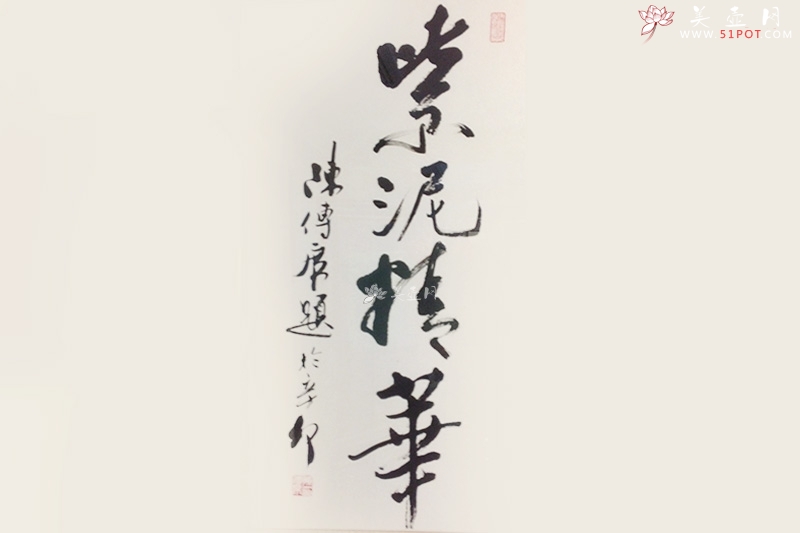 紫泥精華
陳傳席題於辛卯
美壶网
WWW.51POT.COM
美壶网